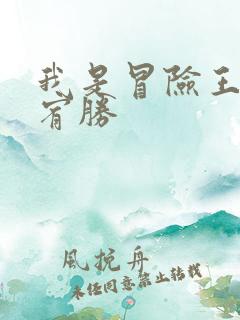 我是冒險王
宵勝
風挽舟
未經同意禁止轉載